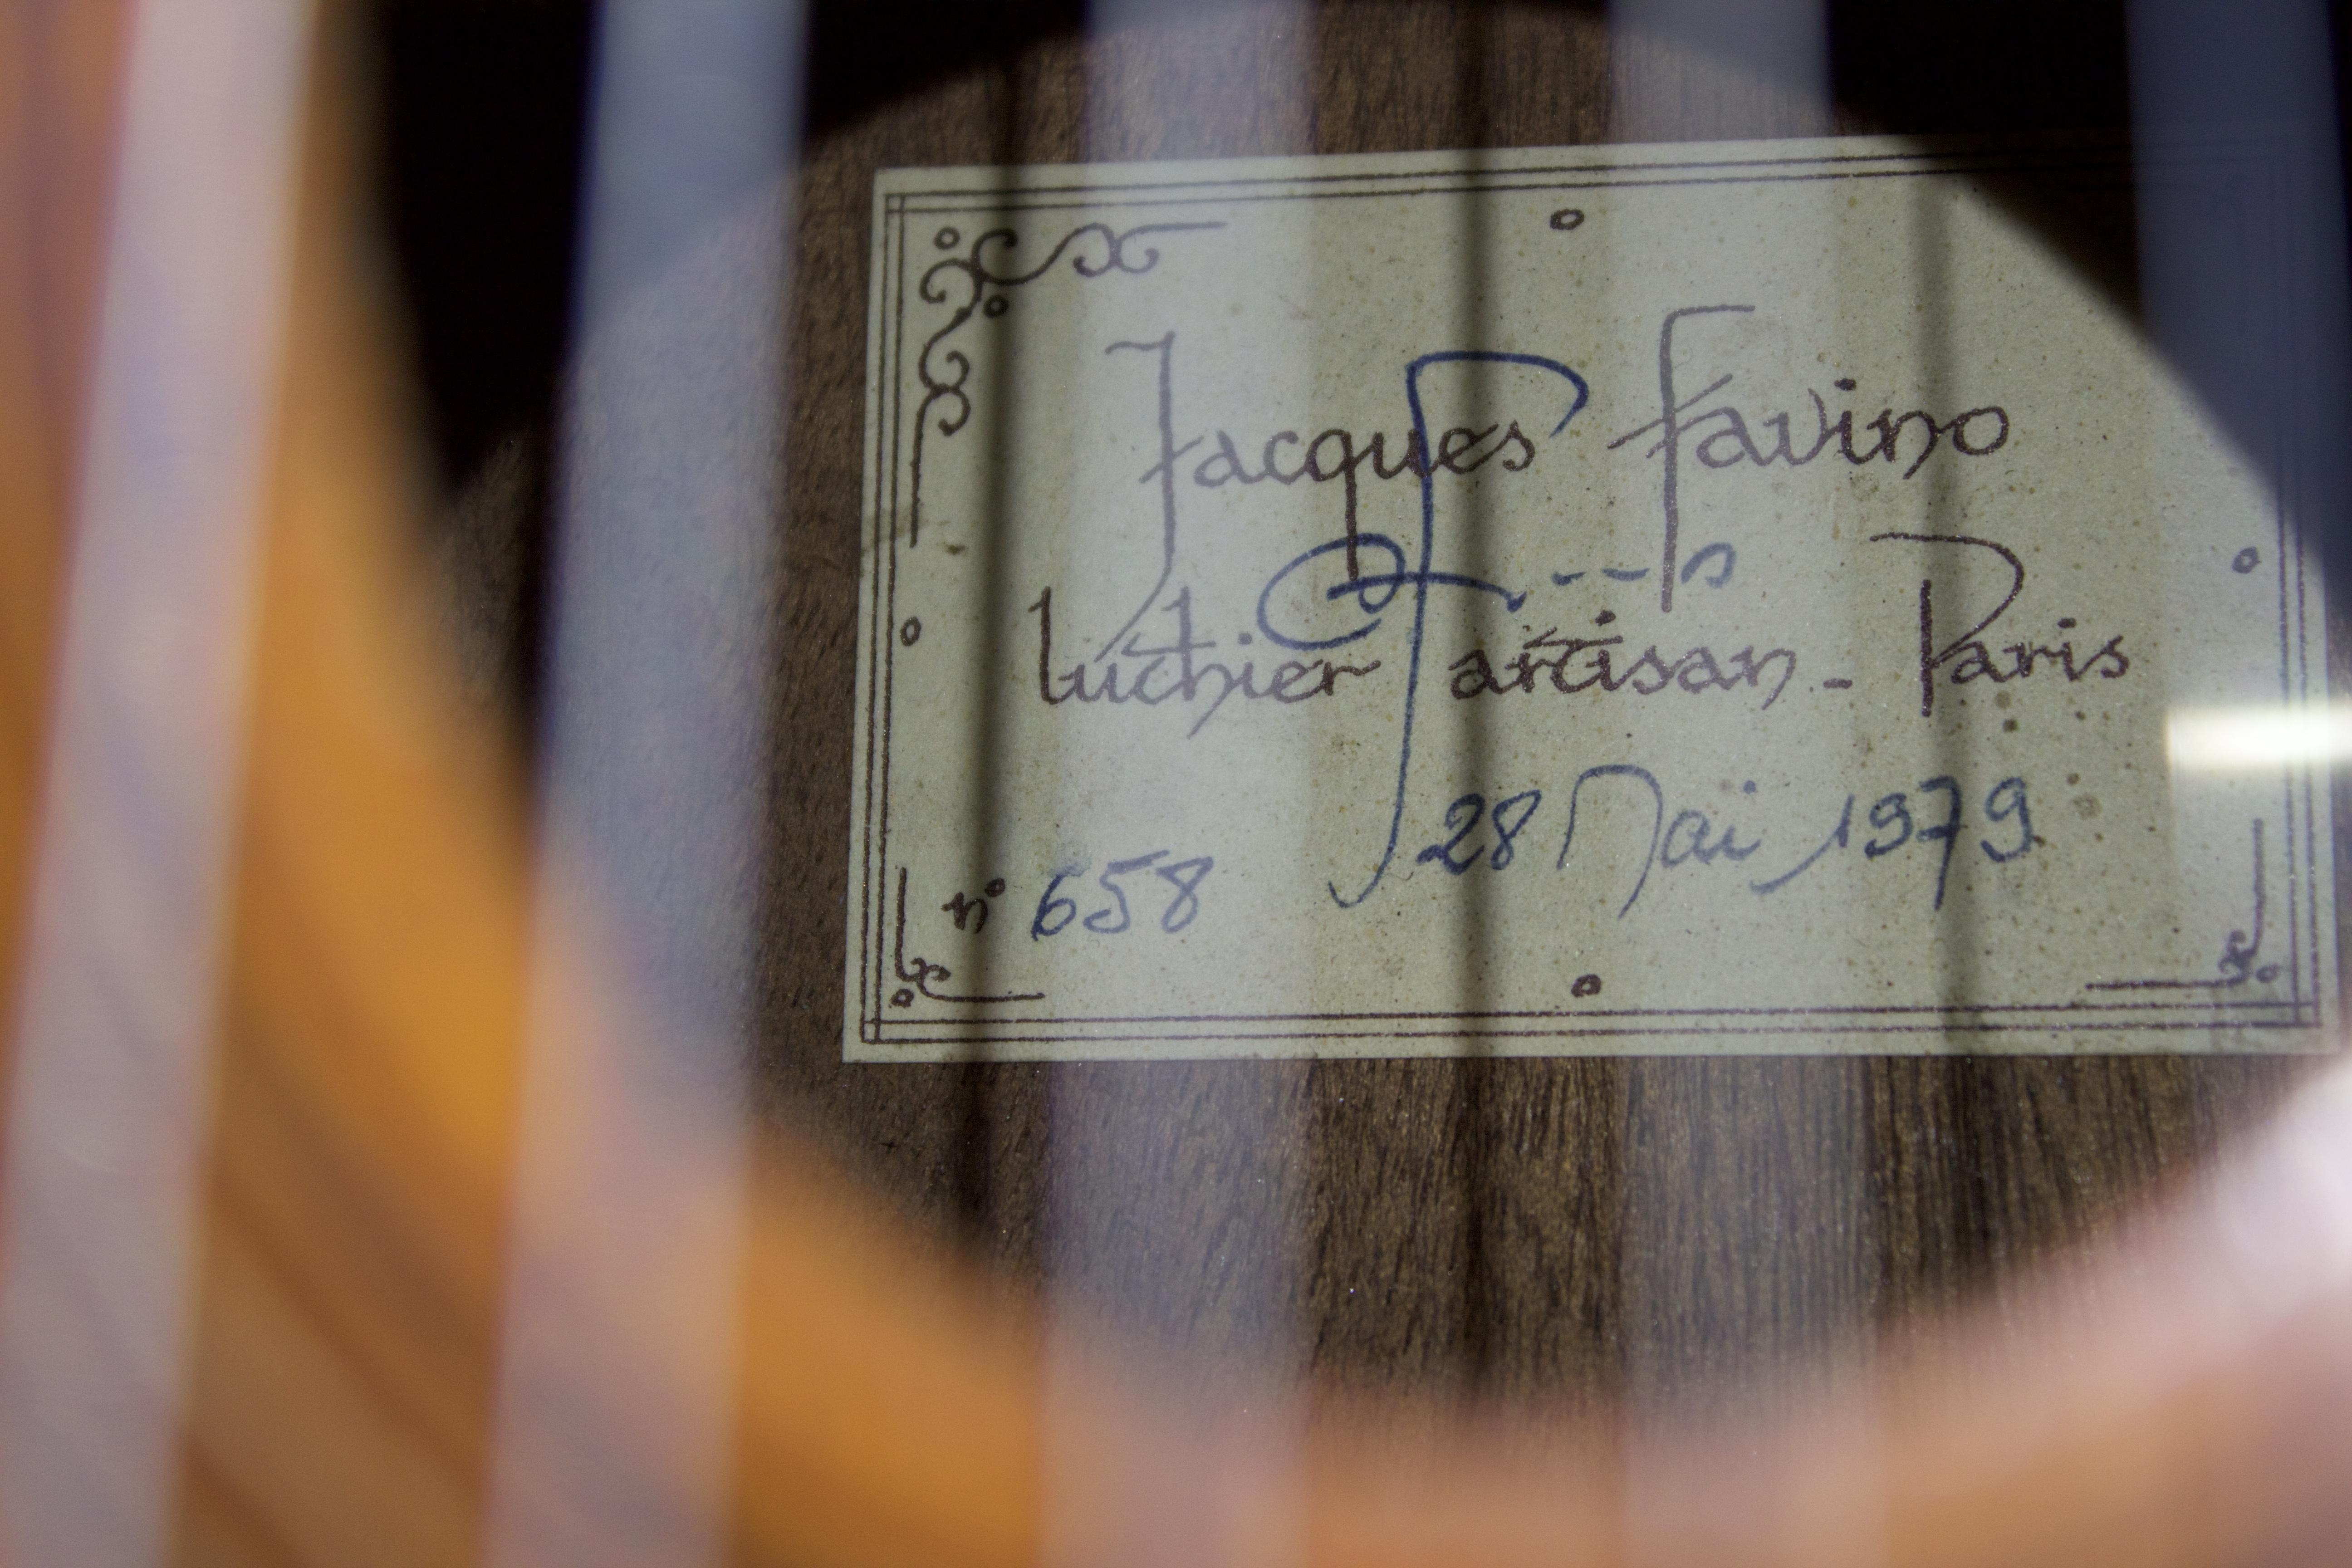 Jacques Favino
luthier artisan - Paris
28 Mai 1979
n° 658